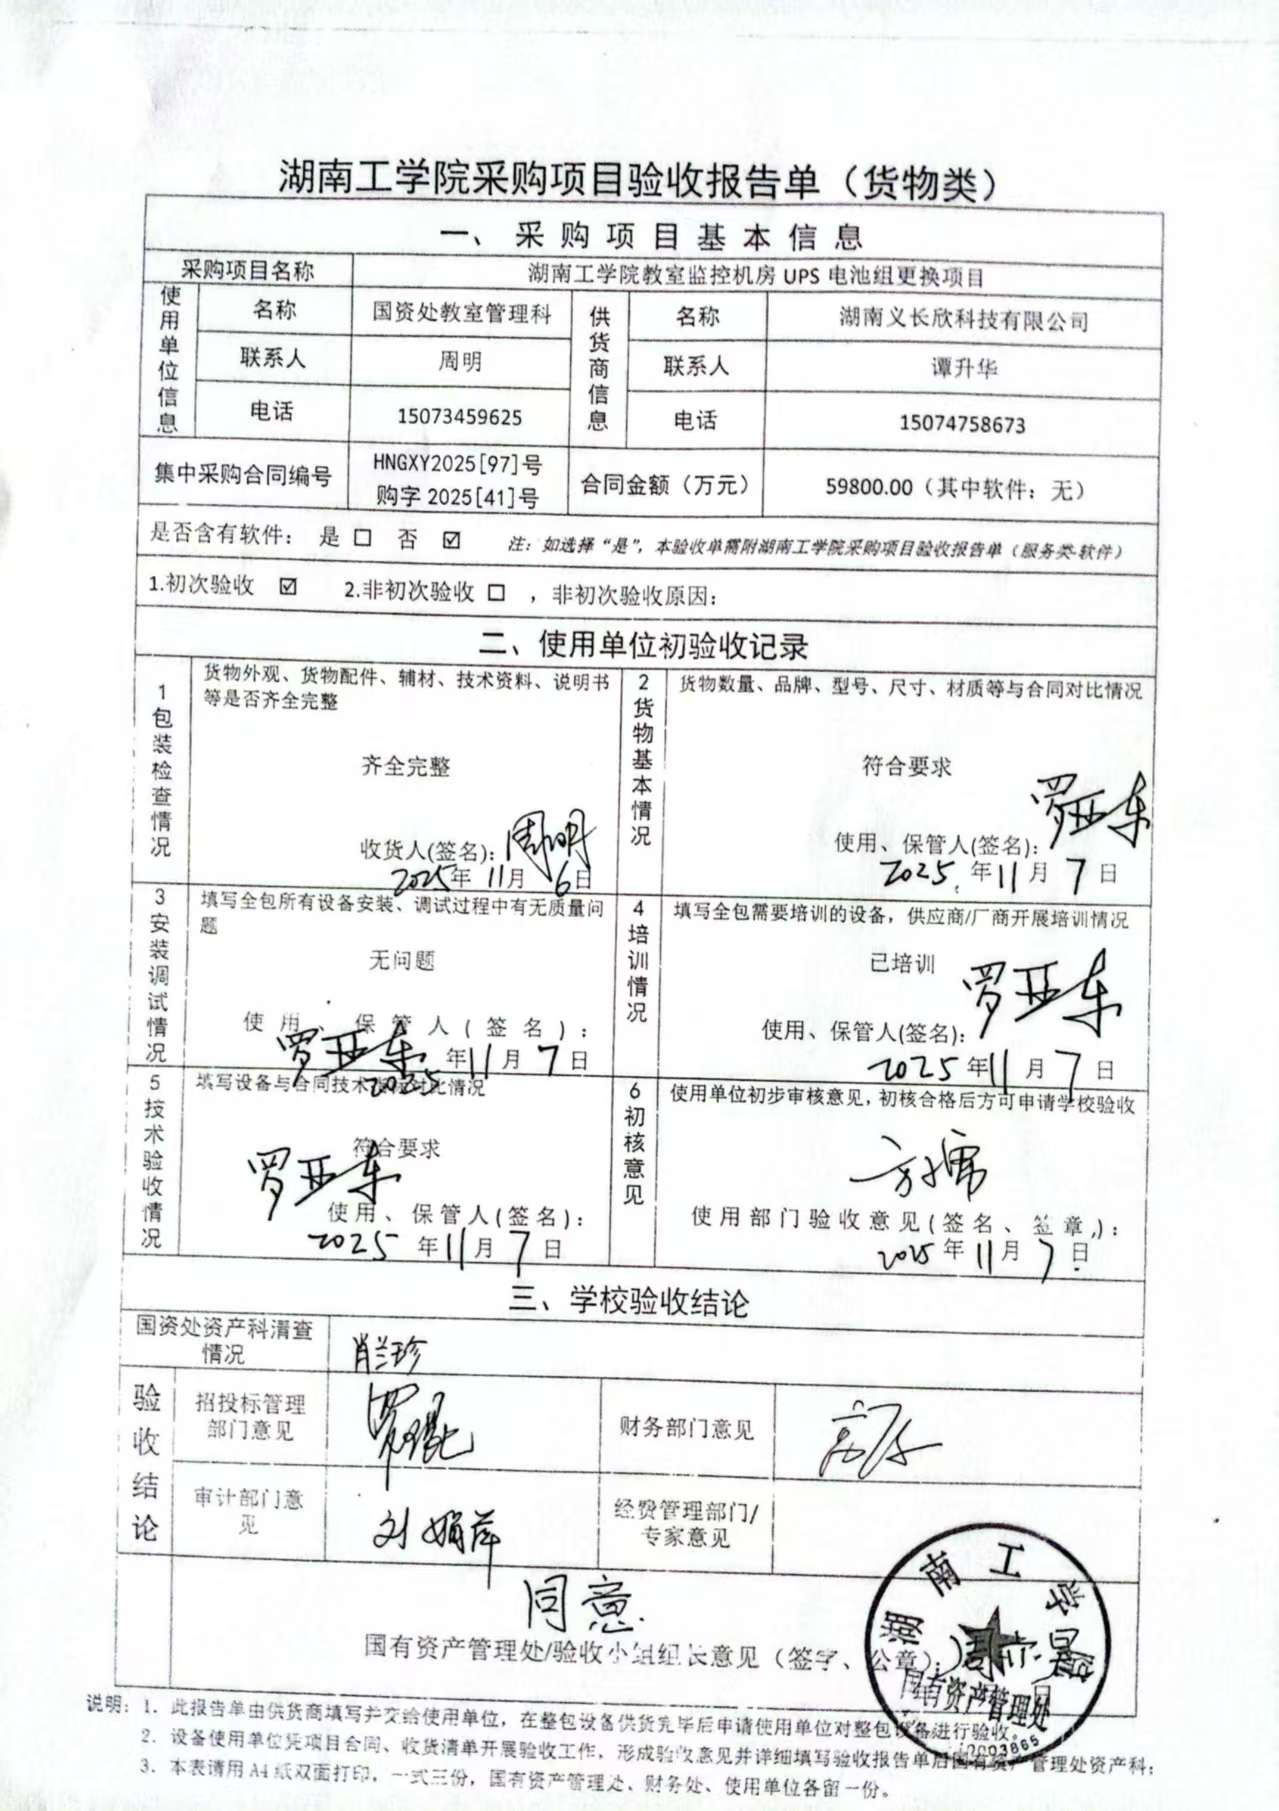 湖南工学院采购项目验收报告单（货物类）
一、采购项目基本信息
采购项目名称 湖南工学院教室监控机房 UPS 电池组更换项目
使用单位信息 名称 国资处教室管理科 供货商信息 名称 湖南义长欣科技有限公司
联系人 周明 联系人 谭升华
电话 15073459625 电话 15074758673
集中采购合同编号 HNGXY2025[97]号 购字 2025[41]号 合同金额（万元） 59800.00（其中软件：无）
是否含有软件： 是 □ 否 ☑ 注：如选择“是”，本验收单需附湖南工学院采购项目验收报告单（服务类-软件）
1.初次验收 ☑ 2.非初次验收 □ ，非初次验收原因：
二、使用单位初验收记录
1 包装检查情况
货物外观、货物配件、辅材、技术资料、说明书
等是否齐全完整
齐全完整
收货人(签名)：周明
2025年 11月 6日
2 货物基本情况
货物数量、品牌、型号、尺寸、材质等与合同对比情况
符合要求
使用、保管人(签名)：罗亚东
2025年 11月 7日
3 安装调试情况
填写全包所有设备安装、调试过程中有无质量问
题
无问题
使用、保管人(签名)：
罗亚东 2025年 11月 7日
4 培训情况
填写全包需要培训的设备，供应商/厂商开展培训情况
已培训
使用、保管人(签名)：罗亚东
2025年 11月 7日
5 技术验收情况
填写设备与合同技术对比情况
符合要求
罗亚东
使用、保管人(签名)：
2025年 11月 7日
6 初核意见
使用单位初步审核意见，初核合格后方可申请学校验收
使用部门验收意见(签名、签章)：
2025年 11月 7日
三、学校验收结论
国资处资产科清查
情况
肖兰珍
验收结论
招投标管理
部门意见
财务部门意见
审计部门意
见
刘娟萍
经费管理部门/
专家意见
同意
国有资产管理处/验收小组组长意见（签字、公章）：
湖南工学院
国有资产管理处
说明：1. 此报告单由供货商填写并交给使用单位，在整包设备供货完毕后申请使用单位对整包设备进行验收。
2. 设备使用单位凭项目合同、收货清单开展验收工作，形成验收意见并详细填写验收报告单后国有资产管理处资产科；
3. 本表请用 A4 纸双面打印，一式三份，国有资产管理处、财务处、使用单位各留一份。